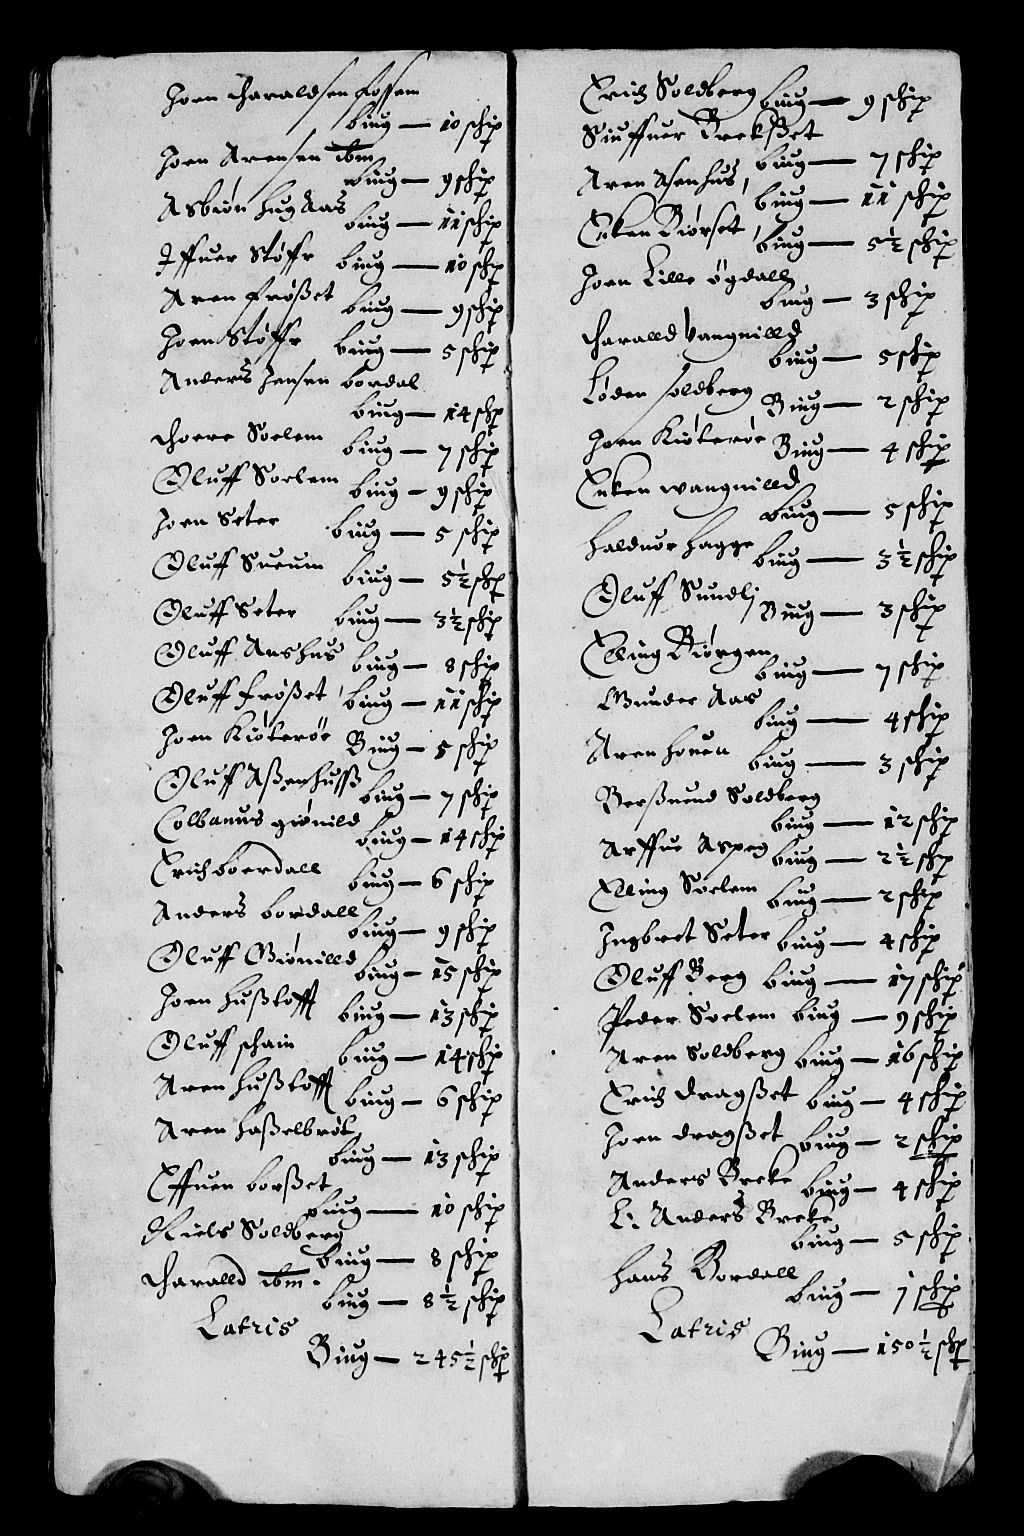 Joen Haraldsen Fossem
biug — 10 schip
Joen Arensen ibm
biug — 9 schip
Asbiøn Hug Aas
biug — 11 schip
Iffuer Støffr biug — 10 schip
Aren Frøßet biug — 9 schip
Joen Støffr biug — 5 schip
Anders Jensen bordal
biug — 14 schip
Thoere Soelem biug — 7 schip
Oluff Soelem biug — 9 schip
Joen Seter biug — 5 schip
Oluff Sueum biug — 5½ schip
Oluff Seter biug — 3½ schip
Oluff Aashus biug — 8 schip
Oluff Frøßet biug — 11 schip
Joen Kiøterøe Biug — 5 schip
Oluff Aßenhuss biug — 7 schip
Colbanus giønild
biug — 14 schip
Erich boerdall
biug — 6 schip
Anders bordall
biug — 9 schip
Oluff Giønilld biug — 15 schip
Joen Hußtofft biug — 13 schip
Oluff schain biug — 14 schip
Aren Hußtofft biug — 6 schip
Aren Haßelbrøt
biug — 13 schip
Effuen borßet
biug — 10 schip
Niels Soldberg
biug — 8 schip
Haralld ibm.
biug — 8½ schip
Latris
Biug — 245½ schip
Erich Soldberg biug — 9 schip
Siuffuer Brekßet
biug — 7 schip
Aren Asenhus, biug — 11 schip
Enken Kiørset, biug — 5½ schip
Joen Lille Øgdall
biug — 3 schip
Haralld Vangnilld
biug — 5 schip
Løden soldberg
Biug — 2 schip
Joen Kiøterøe Biug — 4 schip
Enken wangnilld
biug — 5 schip
Halduor Hagge biug — 3½ schip
Oluff Sundli Biug — 3 schip
Elling Biørgen
biug — 7 schip
Gunder Aas
biug — 4 schip
Aren Houen biug — 3 schip
Berßuend Soldberg
biug — 12 schip
Arffue Aspeg biug — 2½ schip
Elling Soelem biug — 2 schip
Ingbret Seter biug — 4 schip
Oluff Berg biug — 17 schip
Peder Soelem biug — 9 schip
Aren Soldberg biug — 16 schip
Erich dragßet biug — 4 schip
Joen dragßet biug — 2 schip
Anders Breke biug — 4 schip
L: Anders Breke
biug — 5 schip
Hans Bordall
biug — 1 schip
Latris
Biug — 150½ schip